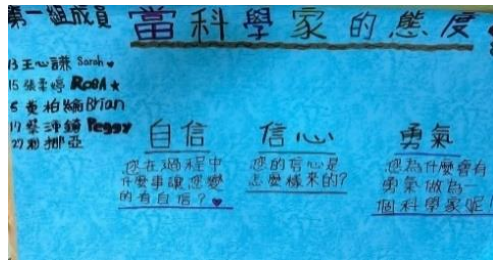 第一組成員
當科學家的態度
13 王心 Sarah
15 張 ROBA ★
5 黃柏 Brian
17 蔡 Peggy
27 挪亞
自信
您在過程中
什麼事讓您變
的有自信？♥
信心
您的信心是
怎麼樣來的?
勇氣
您為什麼會有
勇氣做為一
個科學家呢!